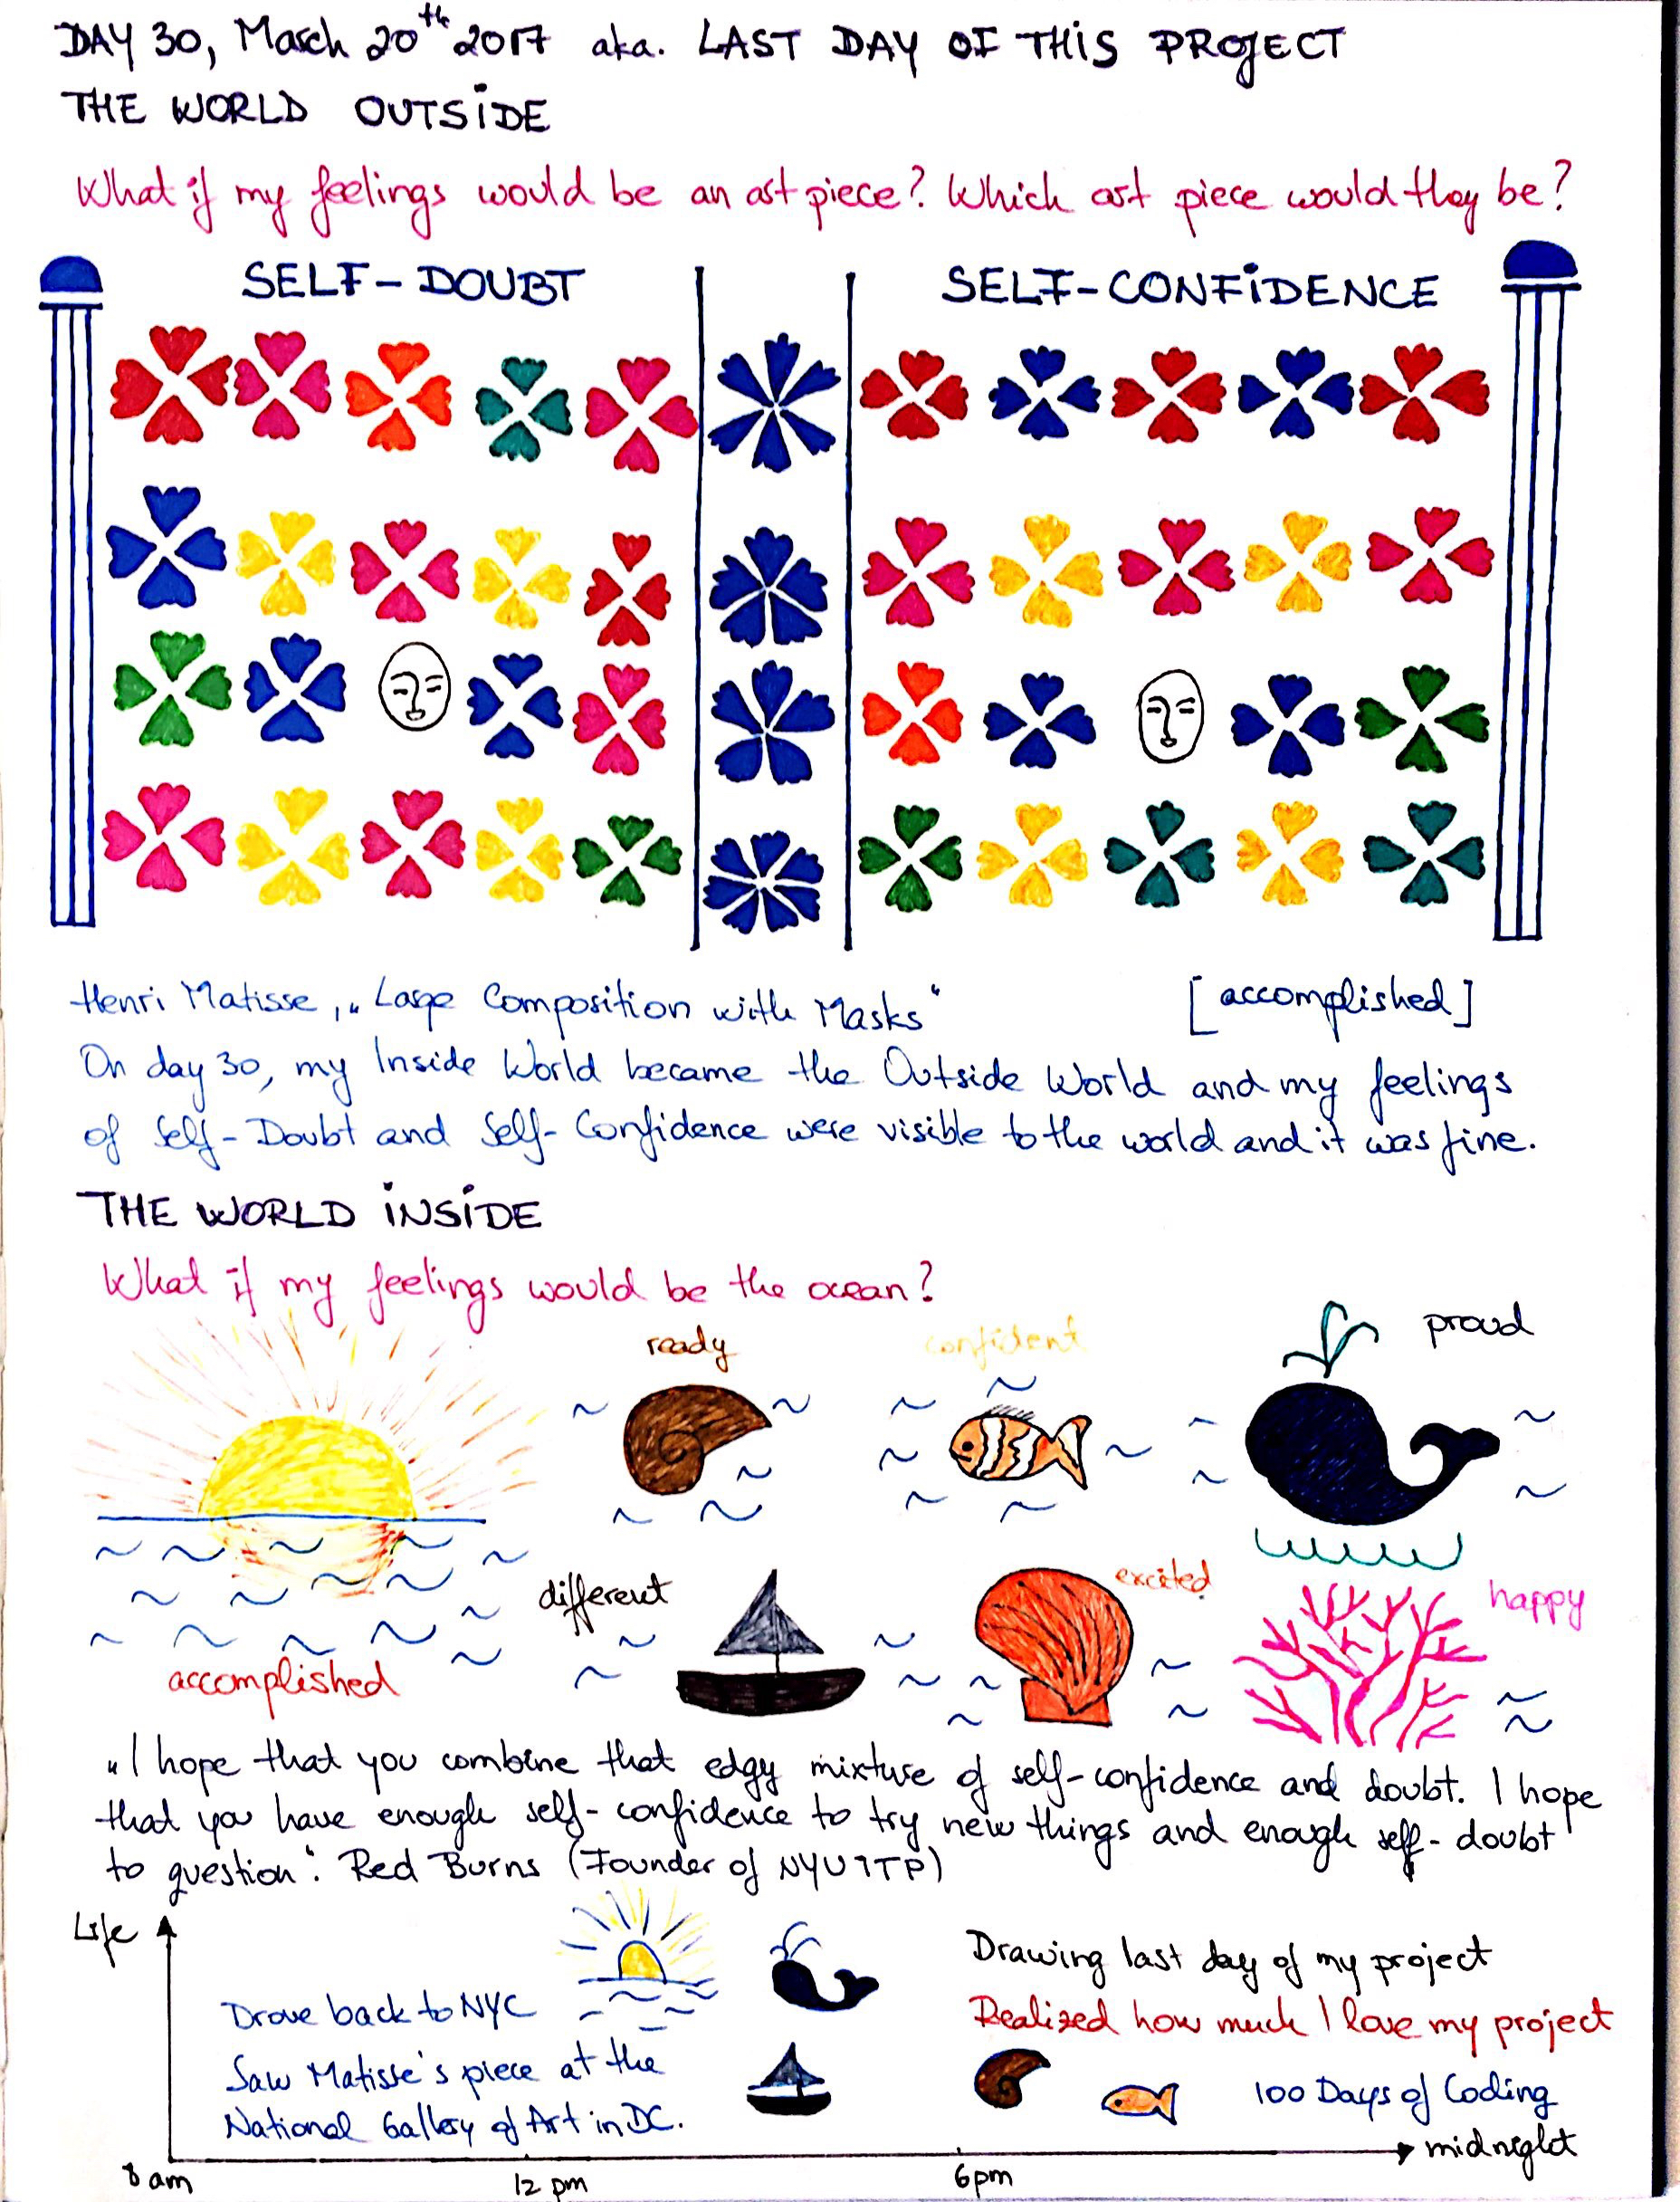 DAY 30, March 20th 2017 aka. LAST DAY OF THIS PROJECT
THE WORLD OUTSIDE
What if my feelings would be an art piece? Which art piece would they be?
SELF-DOUBT
SELF-CONFIDENCE
Henri Matisse, „Large Composition with Masks“
[accomplished]
On day 30, my Inside World became the Outside World and my feelings
of Self-Doubt and Self-Confidence were visible to the world and it was fine.
THE WORLD INSIDE
What if my feelings would be the ocean?
ready
confident
proud
different
excited
happy
accomplished
„I hope that you combine that edgy mixture of self-confidence and doubt. I hope
that you have enough self-confidence to try new things and enough self-doubt
to question“. Red Burns (Founder of NYU ITP)
Life
Drove back to NYC
Saw Matisse's piece at the
National Gallery of Art in DC.
Drawing last day of my project
Realized how much I love my project
100 Days of Coding
midnight
8 am
12 pm
6pm